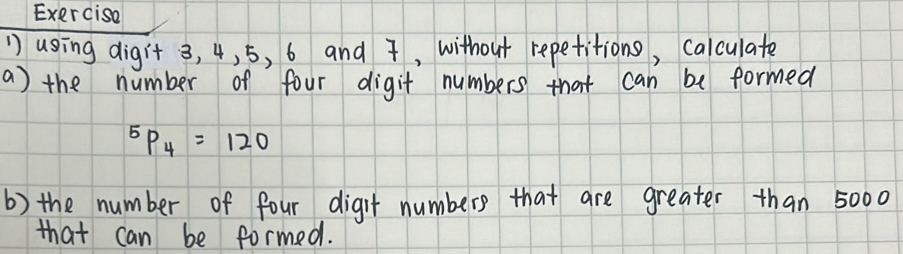 Exercise
1) using digit 3, 4, 5, 6 and 7, without repetitions, calculate
a) the number of four digit numbers that can be formed
⁵P₄ = 120
b) the number of four digit numbers that are greater than 5000
that can be formed.